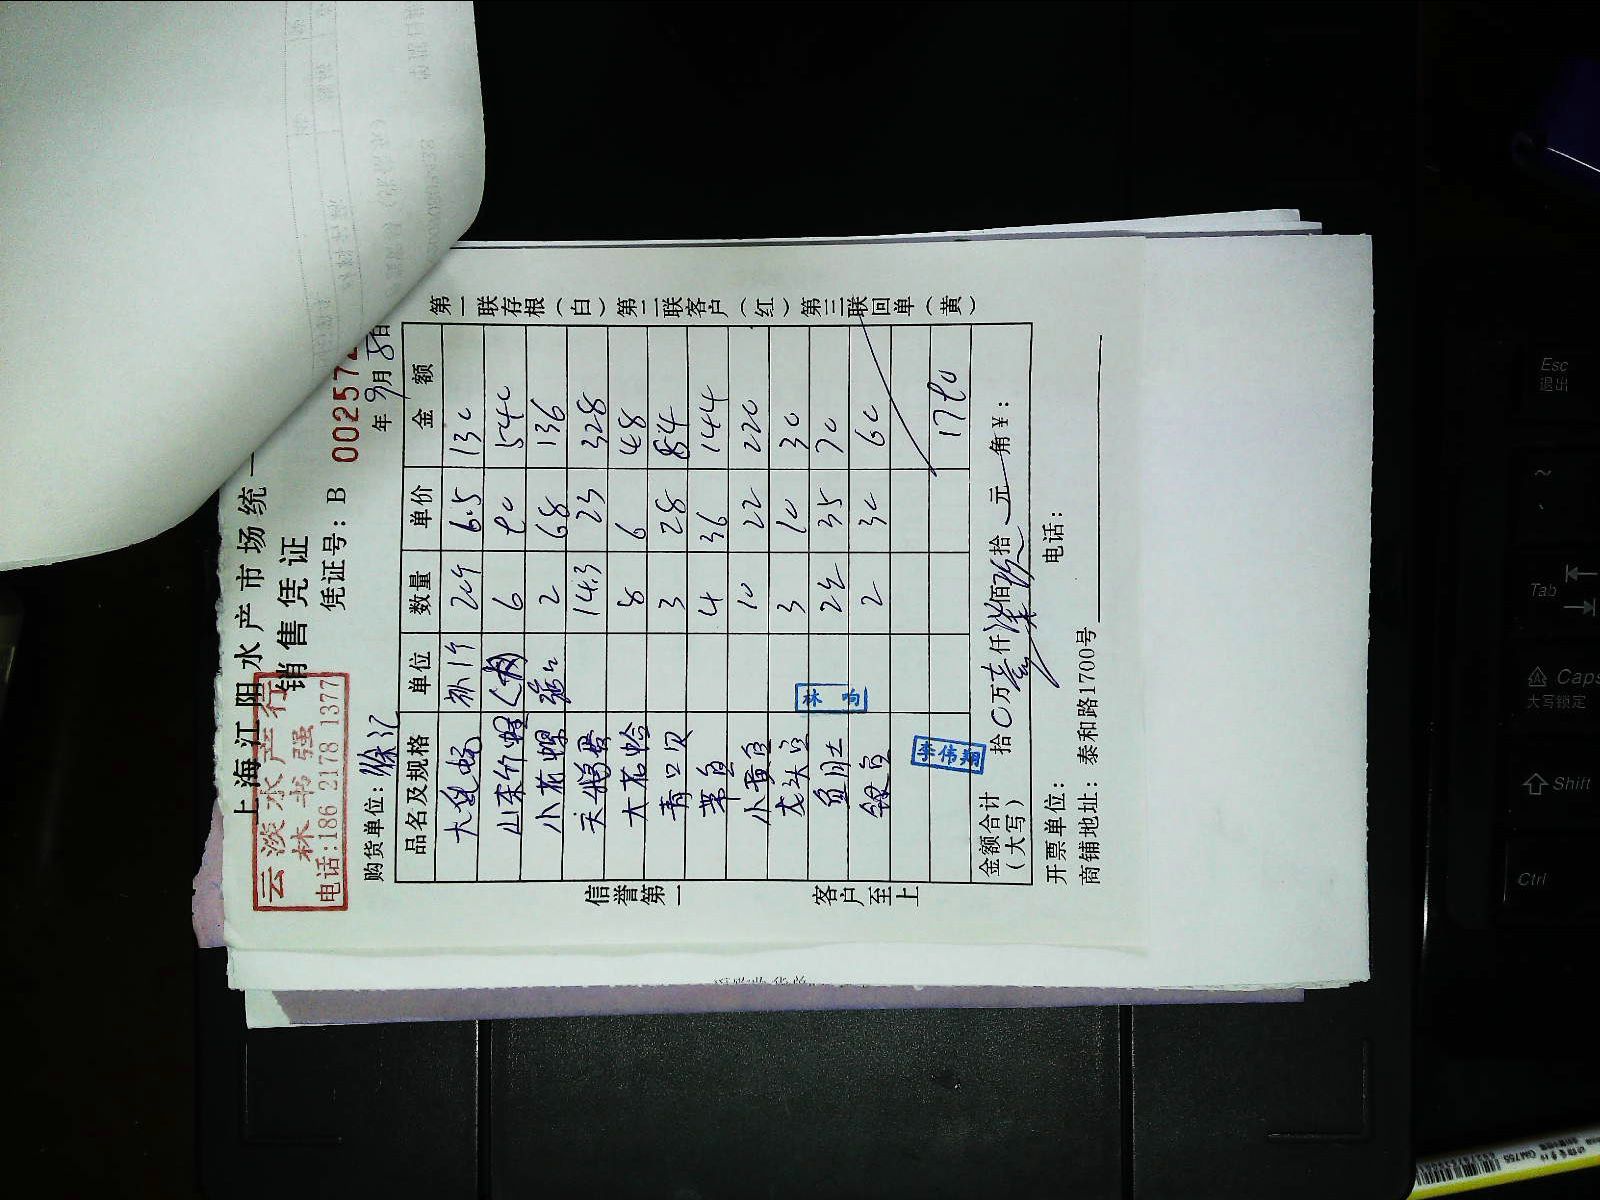 上海江阳水产市场统一
销售凭证
云淡水产行
林书强
电话:186 2178 1377
凭证号: B 002572
购货单位: 徐汇
年 9月 8日
品名及规格 单位 数量 单价 金额
20斤 6.5 130
6 90 540
小花螺 2 68 136
天鹅蛋 14.3 23 328
大花蛤 8 6 48
青口贝 3 28 84
4 36 144
小黄鱼 10 22 220
龙头鱼 3 10 30
鱼肚 2 35 70
银鱼 2 30 60
1790
金额合计
(大写)
拾 0万 壹仟 柒佰 玖拾 元 角 ¥:
开票单位: 电话:
商铺地址: 泰和路1700号
信誉第一
客户至上
第一联存根(白) 第二联客户(红) 第三联回单(黄)
李伟翔
Esc
退出
Tab
Caps
大写锁定
Shift
Ctrl